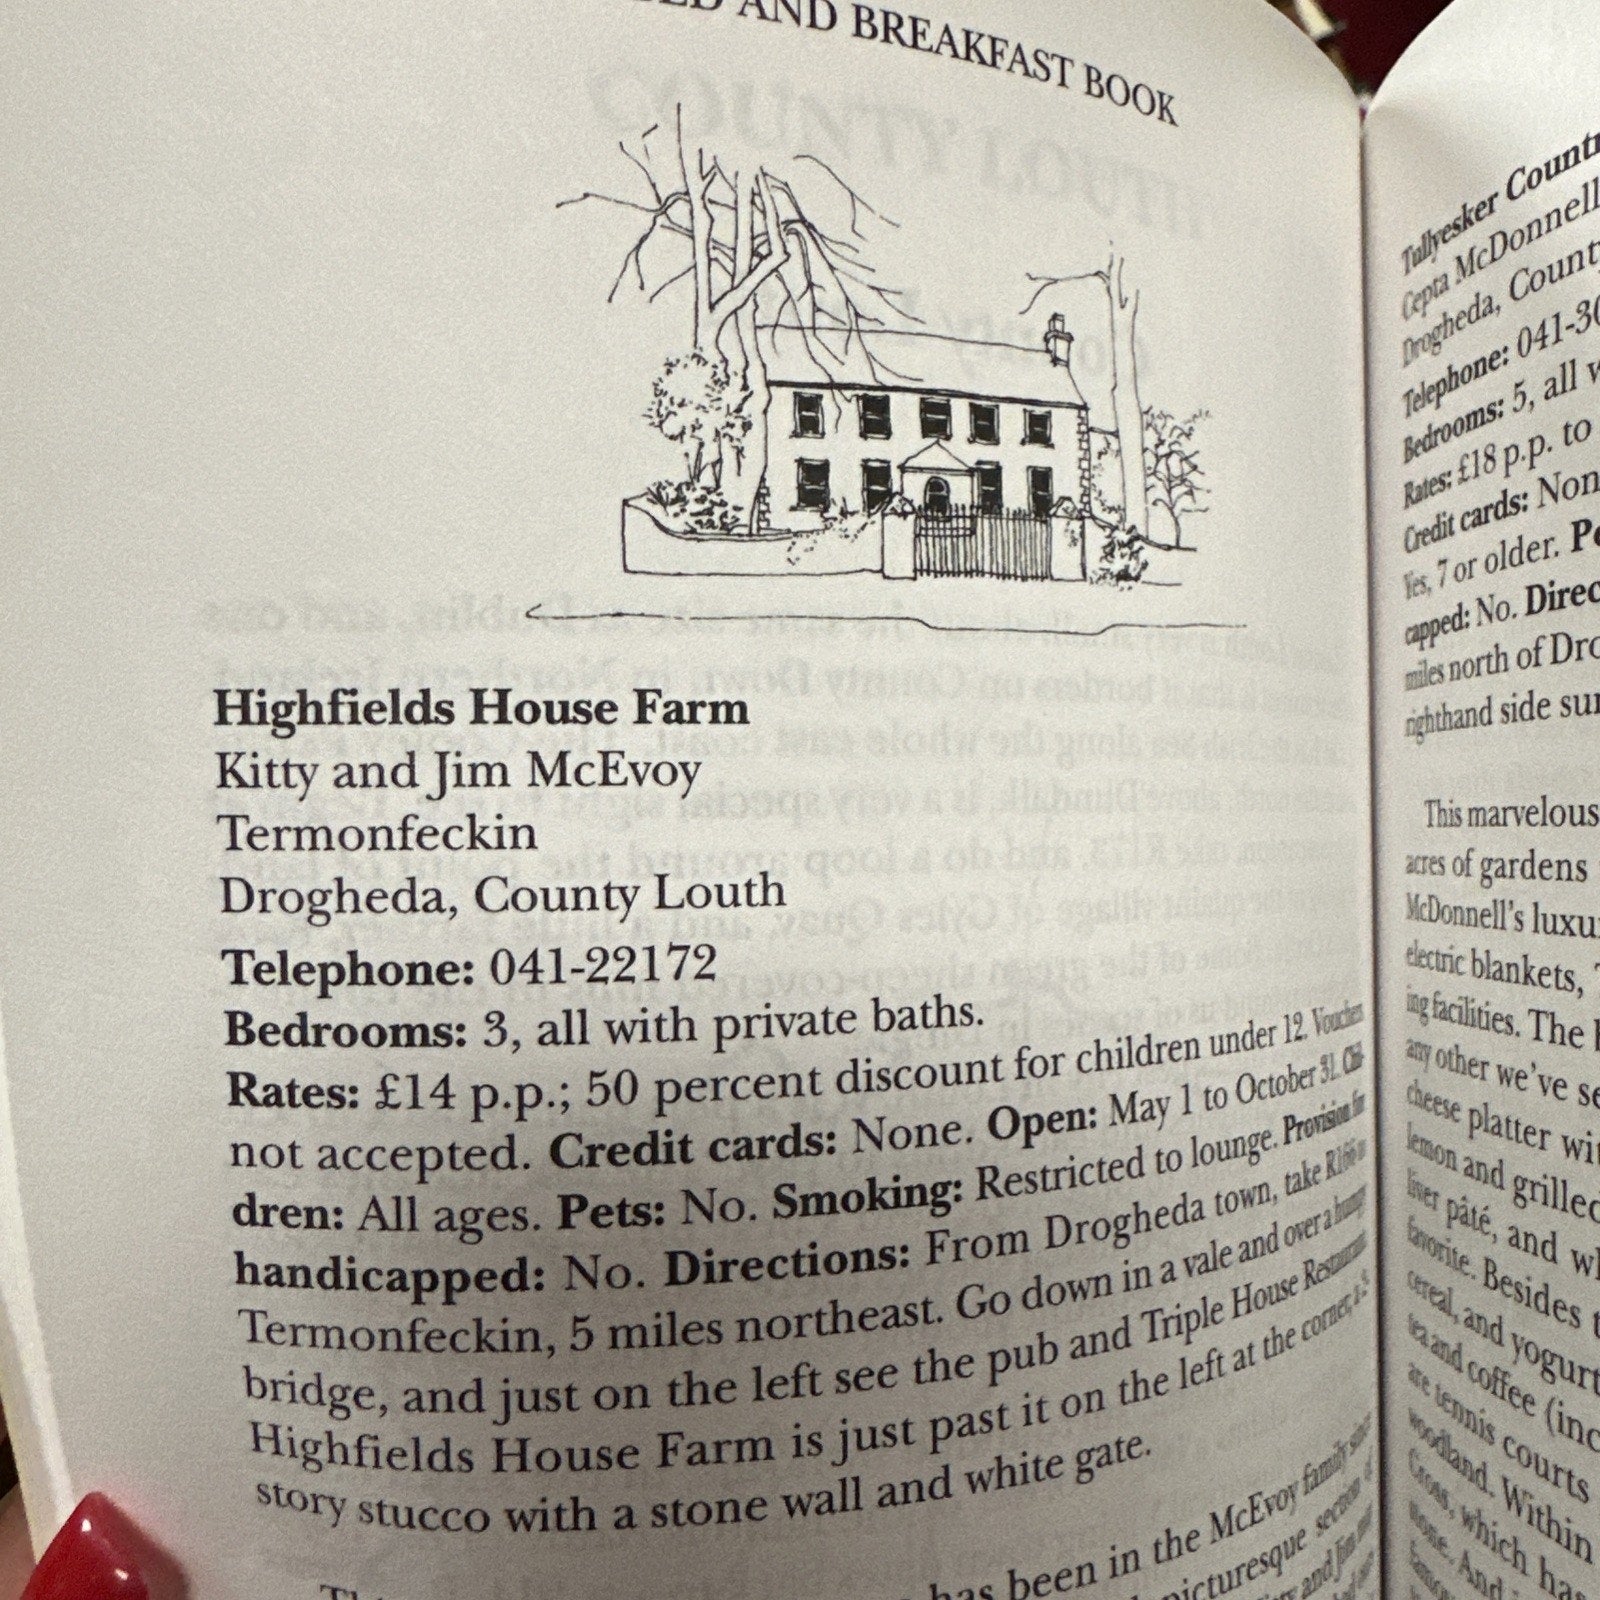 AND BREAKFAST BOOK
Highfields House Farm
Kitty and Jim McEvoy
Termonfeckin
Drogheda, County Louth
Telephone: 041-22172
Bedrooms: 3, all with private baths.
Rates: £14 p.p.; 50 percent discount for children under 12. Vouchers
not accepted. Credit cards: None. Open: May 1 to October 31. Chil-
dren: All ages. Pets: No. Smoking: Restricted to lounge. Provision for
handicapped: No. Directions: From Drogheda town, take R166 to
Termonfeckin, 5 miles northeast. Go down in a vale and over a hump
bridge, and just on the left see the pub and Triple House Restaurant.
Highfields House Farm is just past it on the left at the corner, a 2-
story stucco with a stone wall and white gate.
has been in the McEvoy family since
picturesque section of
and Jim
Tullyesker Country
Cepta McDonnell
Drogheda, County
Telephone: 041-30
Bedrooms: 5, all
Rates: £18 p.p. to
Credit cards: Non
Yes, 7 or older. Pe
capped: No. Direc
miles north of Dro
righthand side sur
This marvelous
acres of gardens
McDonnell's luxu
electric blankets,
ing facilities. The
any other we've se
cheese platter wit
lemon and grilled
liver pâté, and wh
favorite. Besides t
cereal, and yogurt
tea and coffee (inc
are tennis courts
woodland. Within
Cross, which has
mone. And